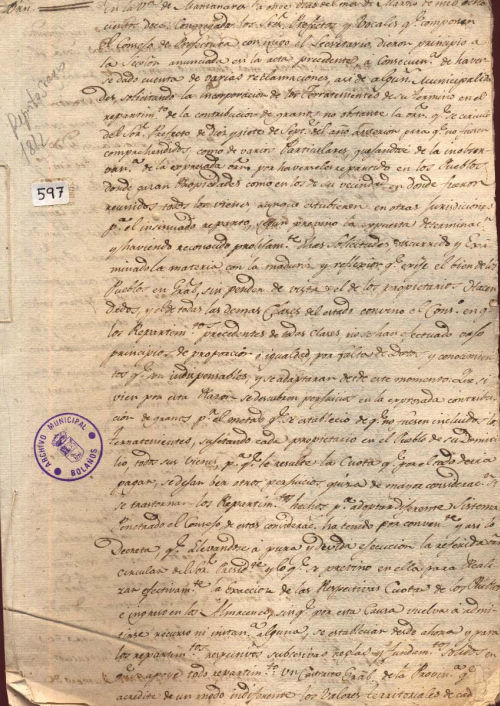 Orn.
En la Va. de Manzanares a once dias del mes de Marzo de mil ocho
cientos doce. Congregados los Sres. Prefecto y Vocales que componen
el Consejo de Prefectura con migo el Secretario, dieron principio a
la Sesion anunciada en la acta precedente, a consecuencia de haver
se dado cuenta de varias reclamaciones, asi de algunas Municipalida
des solicitando la incorporacion de los Terratenientes de su termino en el
repartimto. de la contribucion de granos, no obstante la orn. q. se circuló
del Sor. Prefecto de Diez y siete de Septe. del año anterior para q. no fuesen
comprehendidos como de varios Particulares, quejandose de la
orn. de la expresada por haverseles repartido en los Pueblos
donde Propiedades como en los de su vecindad en donde fueron
reunidos todos los vienes aunque estubieren en otras jurisdiciones
pa. el insinuado reparto, segun previno la expuesta determinacn.
y haviendo reconocido prolixamte. dhas Solicitudes, discurrido y exa
minado la materia con la madurez y reflexion q. exije el bien de los
Pueblos en Gral, sin perder de vista el de los propietarios Hacen
dados, y de todas las demas Clases del estado convino el Consejo en q.
los Repartimtos. precedentes de todas clases, no se han efectuado
principios de proporcion e igualdad por falta de Datos, y conocimien
tos q. son indispensables, y se adaptaran desde este momento: Que si
vien por esta Razon se descubren perjuicios en la expresada contribu
cion de granos pr. el metodo q. se establecio de q. no fuesen incluidos los
terratenientes, sujetando cada propietario en el Pueblo de su Domici
lio todos sus vienes, pa. q. le resulte la Cuota q. por el todo devia
pagar, se dejan ver otros perjuicios quiza de mayor considerac. si
se trastornan los Repartimtos. hechos pa. adoptar diferente Sistema
Penetrado el Consejo de estas considerac. ha tenido por convente. y asi lo
Decreta q. llevandose a pura y devida execucion la referida
circular de y lo q. se previno en ella para Reali
zar efectivamte. la exaccion de las Respectivas Cuotas de los Pueblos
e ingreso en los Almacenes, sin q. por esta Causa vuelva a admi
tirse recurso ni instana. alguna, se establezcan desde ahora y para
los repartimtos. respectivos subcesivos reglas y fundamtos. solidos en
que apoye todo repartimto. Un Catastro Gral. de la Provina. q.
acredite de un modo indiferente los Valores territoriales de cada
597
ARCHIVO MUNICIPAL
BOLAÑOS